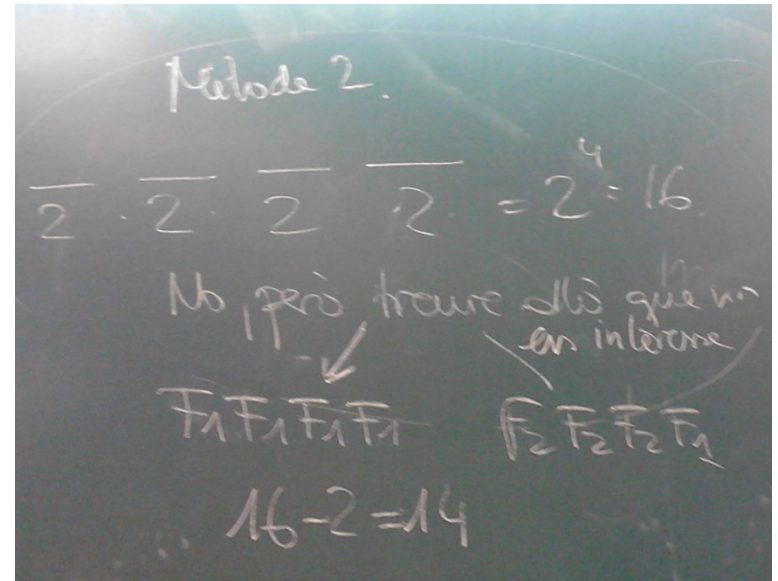 Mètode 2.
2 · 2 · 2 · 2 = 2⁴ = 16.
No, però treure allò que no
ens interesse
F1 F1 F1 F1 F2 F2 F2 F1
16 - 2 = 14